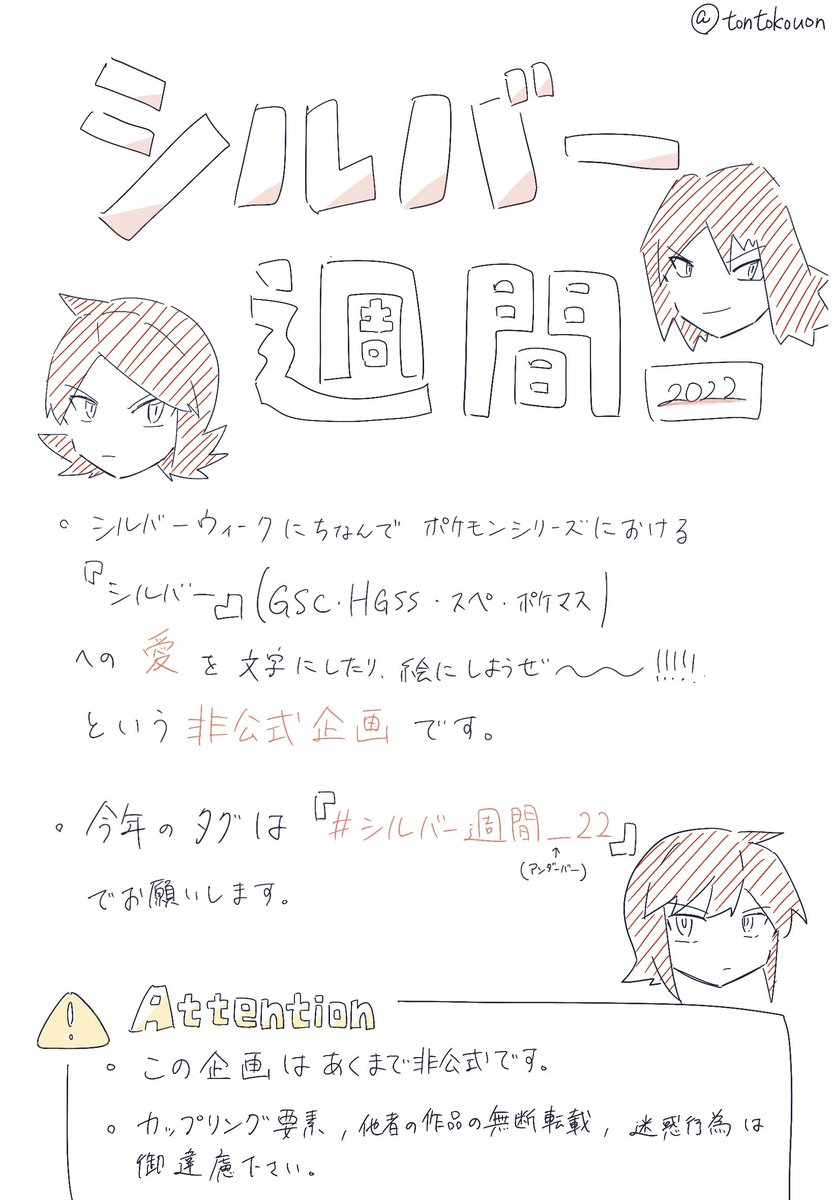 @tontokouon
シルバー
週間
2022
○ シルバーウィークにちなんで ポケモンシリーズにおける
『シルバー』(GSC・HGSS・スペ・ポケマス)
への 愛 を 文字にしたり、絵にしようぜ〜〜!!!!!
という 非公式企画 です。
○ 今年のタグは『#シルバー週間_22』
↑
(アンダーバー)
でお願いします。
! Attention
○ この企画はあくまで非公式です。
○ カップリング要素, 他者の作品の無断転載, 迷惑行為は
御遠慮下さい。